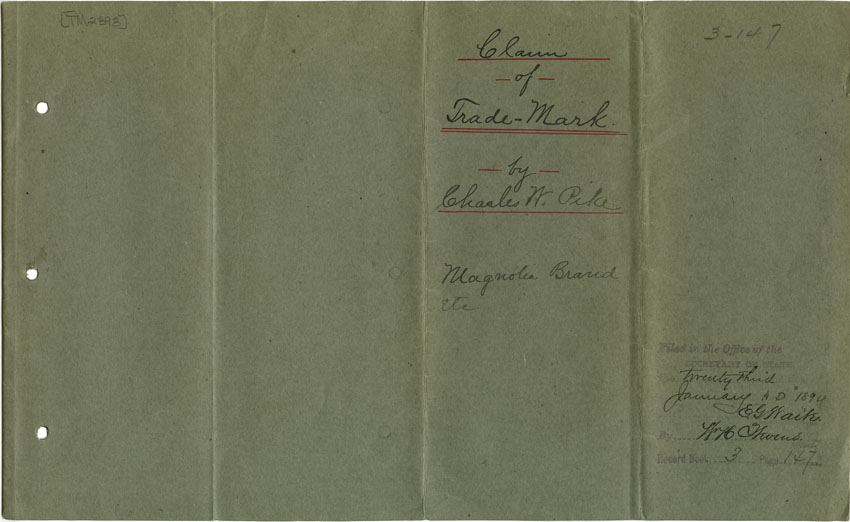 [TM2393]
Claim
- of -
Trade-Mark.
- by -
Charles W. Pike
Magnolia Brand
etc
3-147
Filed in the Office of the
SECRETARY OF STATE
twenty third
January A D 1894
E G Waite
By
Record Book 3 Page 147